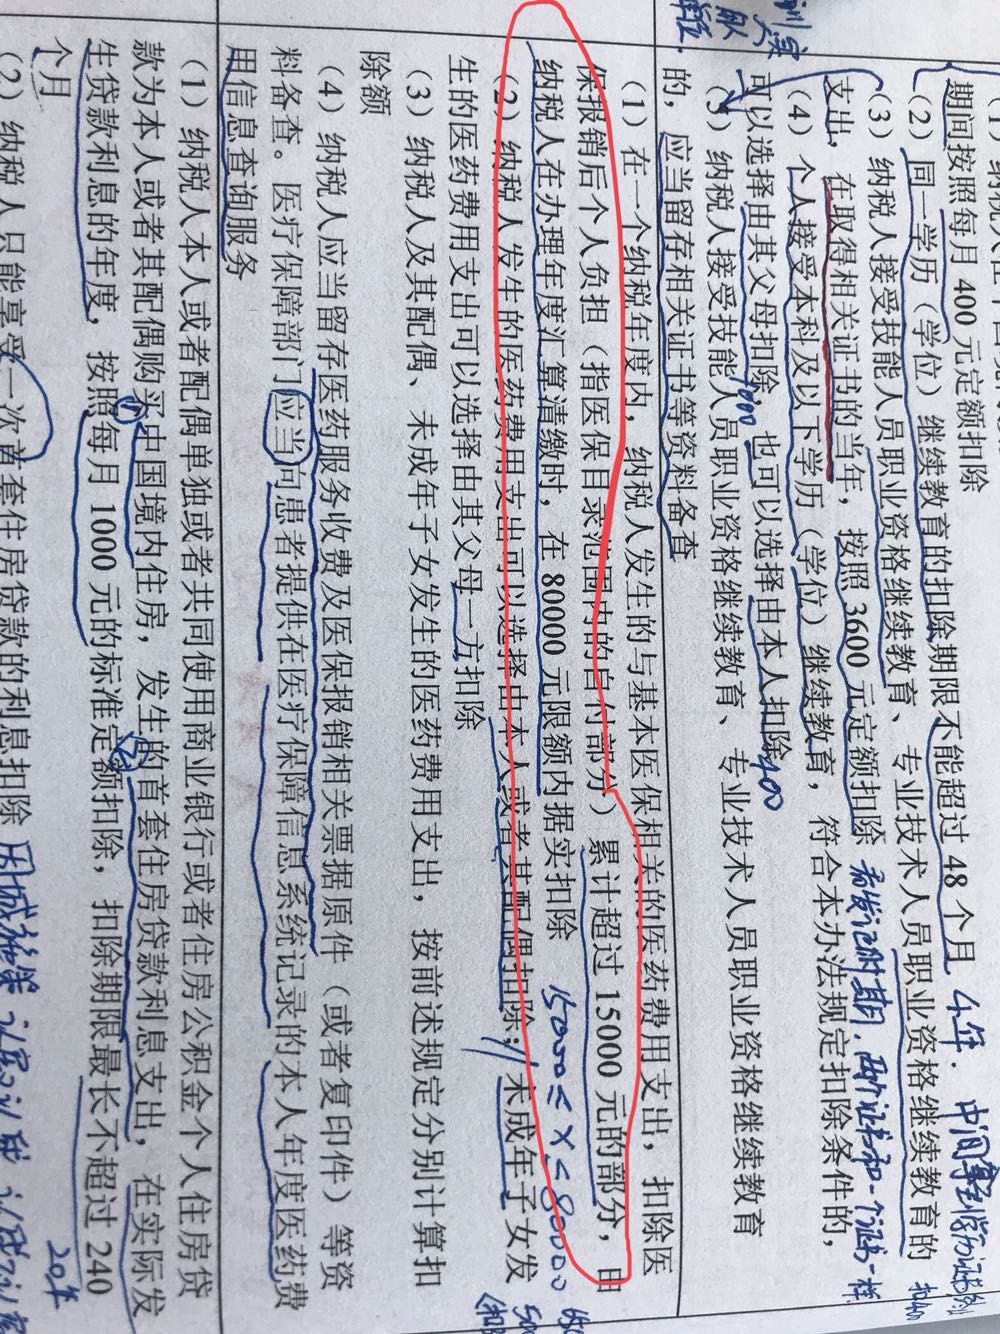 期间按照每月 400 元定额扣除
（2）同一学历（学位）继续教育的扣除期限不能超过 48 个月 4年. 中间拿到学历证书
（3）纳税人接受技能人员职业资格继续教育、专业技术人员职业资格继续教育的
支出，在取得相关证书的当年，按照 3600 元定额扣除 看发证时期，两个证书和一个证书一样
（4）个人接受本科及以下学历（学位）继续教育，符合本办法规定扣除条件的，
可以选择由其父母扣除，也可以选择由本人扣除
1000
400
（5）纳税人接受技能人员职业资格继续教育、专业技术人员职业资格继续教育
的，应当留存相关证书等资料备查
（1）在一个纳税年度内，纳税人发生的与基本医保相关的医药费用支出，扣除医
保报销后个人负担（指医保目录范围内的自付部分）累计超过 15000 元的部分，由
纳税人在办理年度汇算清缴时，在 80000 元限额内据实扣除 15000≤X≤80000
（2）纳税人发生的医药费用支出可以选择由本人或者其配偶扣除；未成年子女发
生的医药费用支出可以选择由其父母一方扣除
（3）纳税人及其配偶、未成年子女发生的医药费用支出，按前述规定分别计算扣
除额
（4）纳税人应当留存医药服务收费及医保报销相关票据原件（或者复印件）等资
料备查。医疗保障部门应当向患者提供在医疗保障信息系统记录的本人年度医药费
用信息查询服务
（1）纳税人本人或者配偶单独或者共同使用商业银行或者住房公积金个人住房贷
款为本人或者其配偶购买中国境内住房，发生的首套住房贷款利息支出，在实际发
生贷款利息的年度，按照每月 1000 元的标准定额扣除，扣除期限最长不超过 240
个月
20年
（2）纳税人只能享受一次首套住房贷款的利息扣除 因城施策